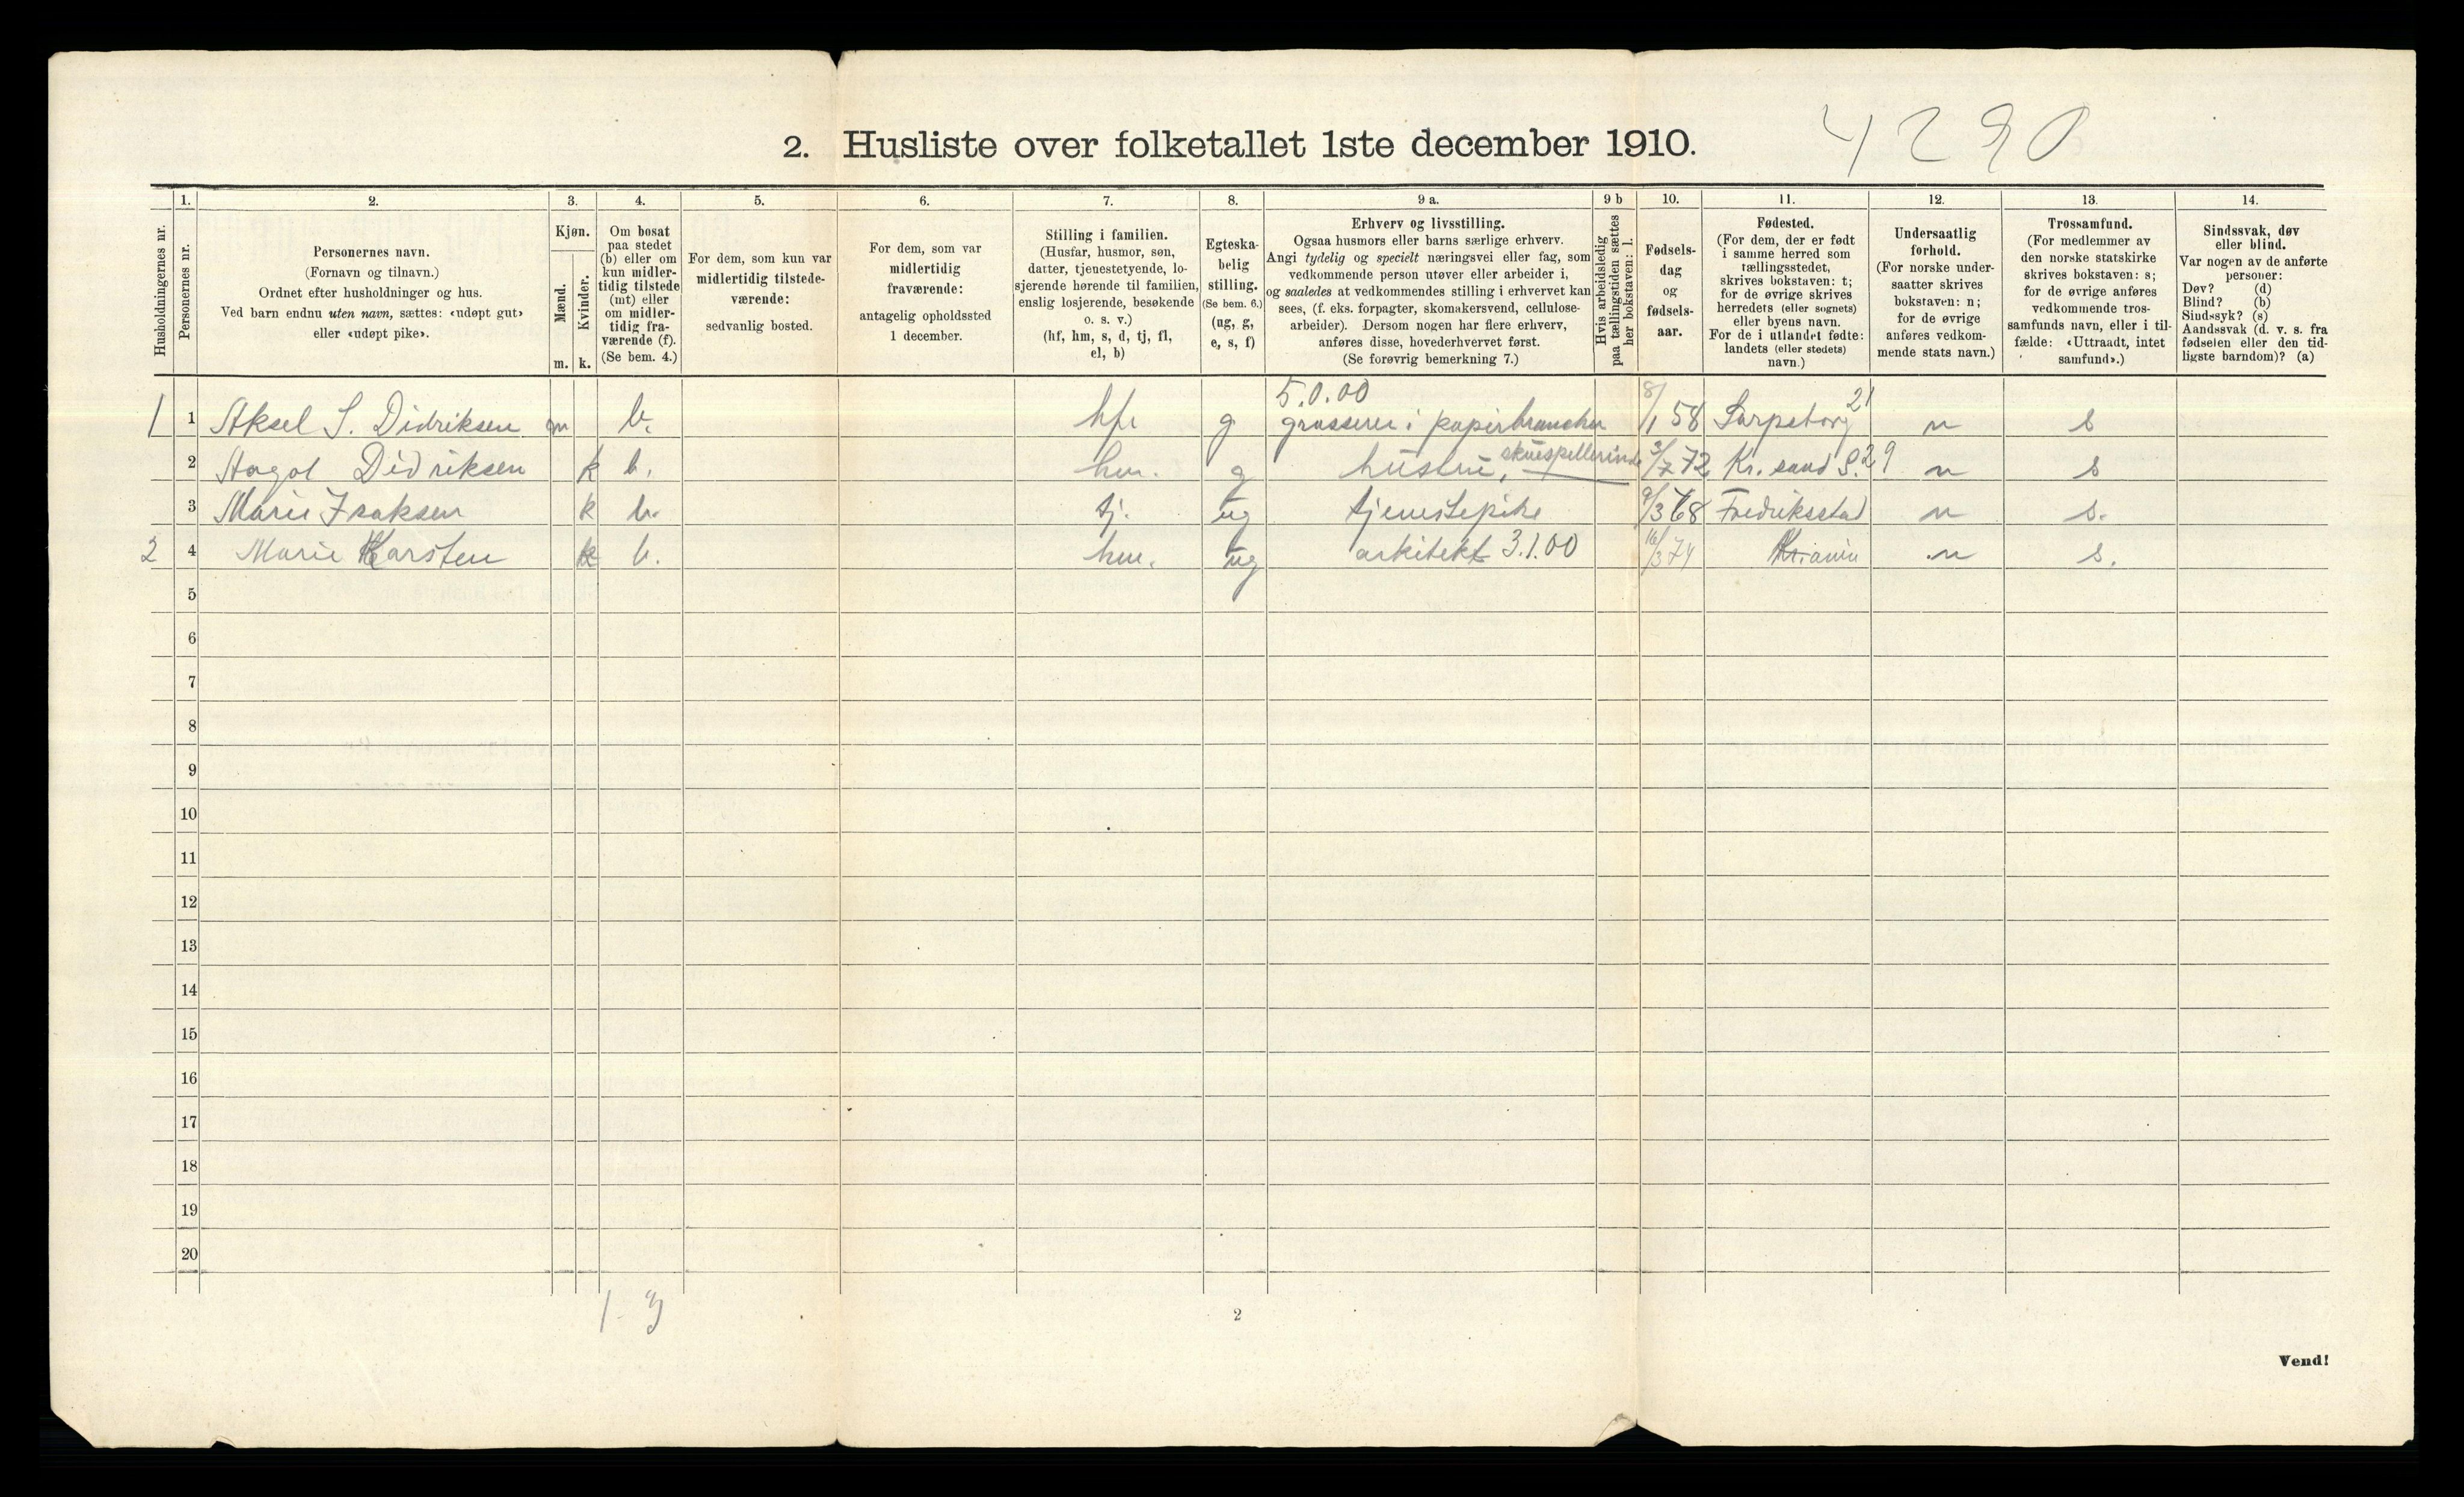 4290
2. Husliste over folketallet 1ste december 1910.
1. 2. 3. 4. 5. 6. 7. 8. 9 a. 9 b 10. 11. 12. 13. 14.
Husholdningernes nr.
Personernes nr.
Personernes navn.
(Fornavn og tilnavn.)
Ordnet efter husholdninger og hus.
Ved barn endnu uten navn, sættes: «udøpt gut»
eller «udøpt pike».
Kjøn.
Mænd.
m.
Kvinder.
k.
Om bosat
paa stedet
(b) eller om
kun midler-
tidig tilstede
(mt) eller
om midler-
tidig fra-
værende (f).
(Se bem. 4.)
For dem, som kun var
midlertidig tilstede-
værende:
sedvanlig bosted.
For dem, som var
midlertidig
fraværende:
antagelig opholdssted
1 december.
Stilling i familien.
(Husfar, husmor, søn,
datter, tjenestetyende, lo-
sjerende hørende til familien,
enslig losjerende, besøkende
o. s. v.)
(hf, hm, s, d, tj, fl,
el, b)
Egteska-
belig
stilling.
(Se bem. 6.)
(ug, g,
e, s, f)
Erhverv og livsstilling.
Ogsaa husmors eller barns særlige erhverv.
Angi tydelig og specielt næringsvei eller fag, som
vedkommende person utøver eller arbeider i,
og saaledes at vedkommendes stilling i erhvervet kan
sees, (f. eks. forpagter, skomakersvend, cellulose-
arbeider). Dersom nogen har flere erhverv,
anføres disse, hovederhvervet først.
(Se forøvrig bemerkning 7.)
Hvis arbeidsledig
paa tællingstiden sættes
her bokstaven: l.
Fødsels-
dag
og
fødsels-
aar.
Fødested.
(For dem, der er født
i samme herred som
tællingsstedet,
skrives bokstaven: t;
for de øvrige skrives
herredets (eller sognets)
eller byens navn.
For de i utlandet fødte:
landets (eller stedets)
navn.)
Undersaatlig
forhold.
(For norske under-
saatter skrives
bokstaven: n;
for de øvrige
anføres vedkom-
mende stats navn.)
Trossamfund.
(For medlemmer av
den norske statskirke
skrives bokstaven: s;
for de øvrige anføres
vedkommende tros-
samfunds navn, eller i til-
fælde: «Uttraadt, intet
samfund».)
Sindssvak, døv
eller blind.
Var nogen av de anførte
personer:
Døv? (d)
Blind? (b)
Sindssyk? (s)
Aandssvak (d. v. s. fra
fødselen eller den tid-
ligste barndom)? (a)
5.0.00
1 1 Aksel S. Didriksen m b. hf g grosserer i papirbranchen 8/1 58 Sarpsborg 21 n s
2 Aagot Didriksen k b. hm. g hustru, skuespillerinde 3/7 72 Kr.sand S. 29 n s
3 Marie Isaksen k b. tj. ug tjenestepike 9/3 68 Fredriksstad n s.
2 4 Marie Karsten k b. hm. ug arkitekt 3.1.00 16/3 74 Kr.ania n s.
5
6
7
8
9
10
11
12
13
14
15
16
17
18
19
20
1-3
2
Vend!